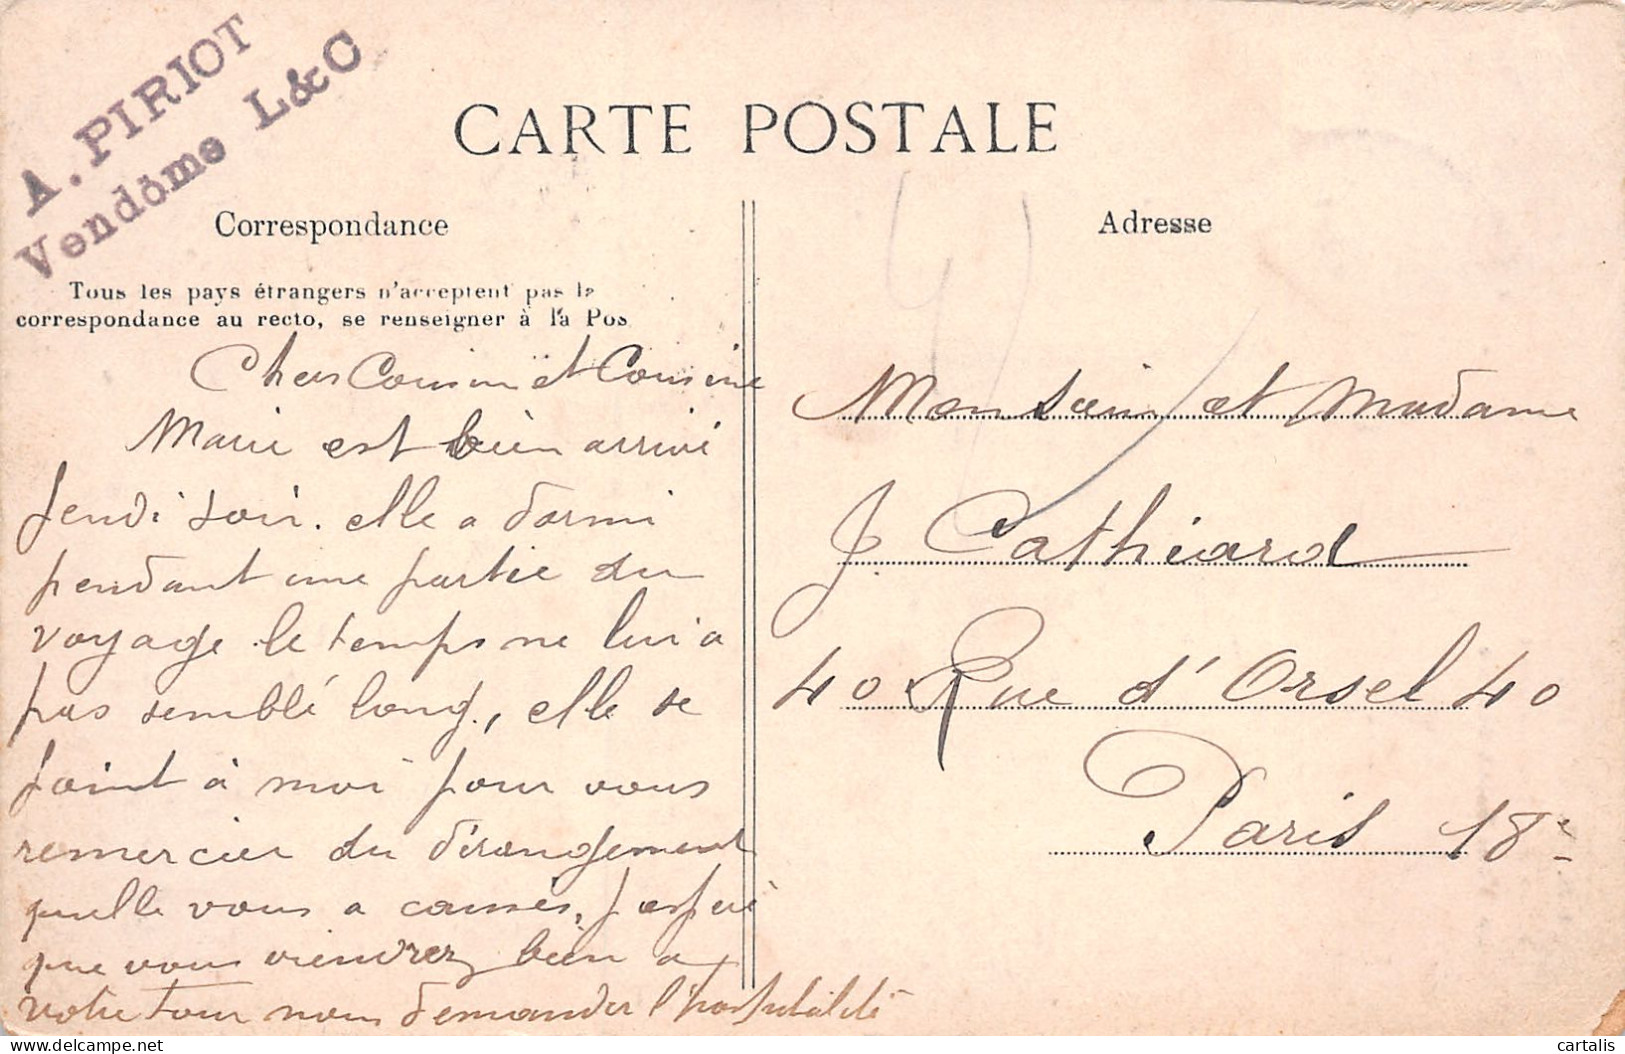 A. PIRIOT
Vendôme L&C
CARTE POSTALE
Correspondance
Adresse
Tous les pays étrangers n'acceptent pas la
correspondance au recto, se renseigner à la Pos
Chers Cousin et Cousine
Marie est bien arrivé
Jeudi soir. elle a dormi
pendant une partie du
voyage le temps ne lui a
pas semblé long, elle se
joint à moi pour vous
remercier du dérangement
quelle vous a causés, J'espère
que vous viendrez bien a
votre tour nous demander l'hospitalité
Monsieur et Madame
J. Cathiard
40 Rue d'Orsel 40
Paris 18e
cartalis
delcampe.net